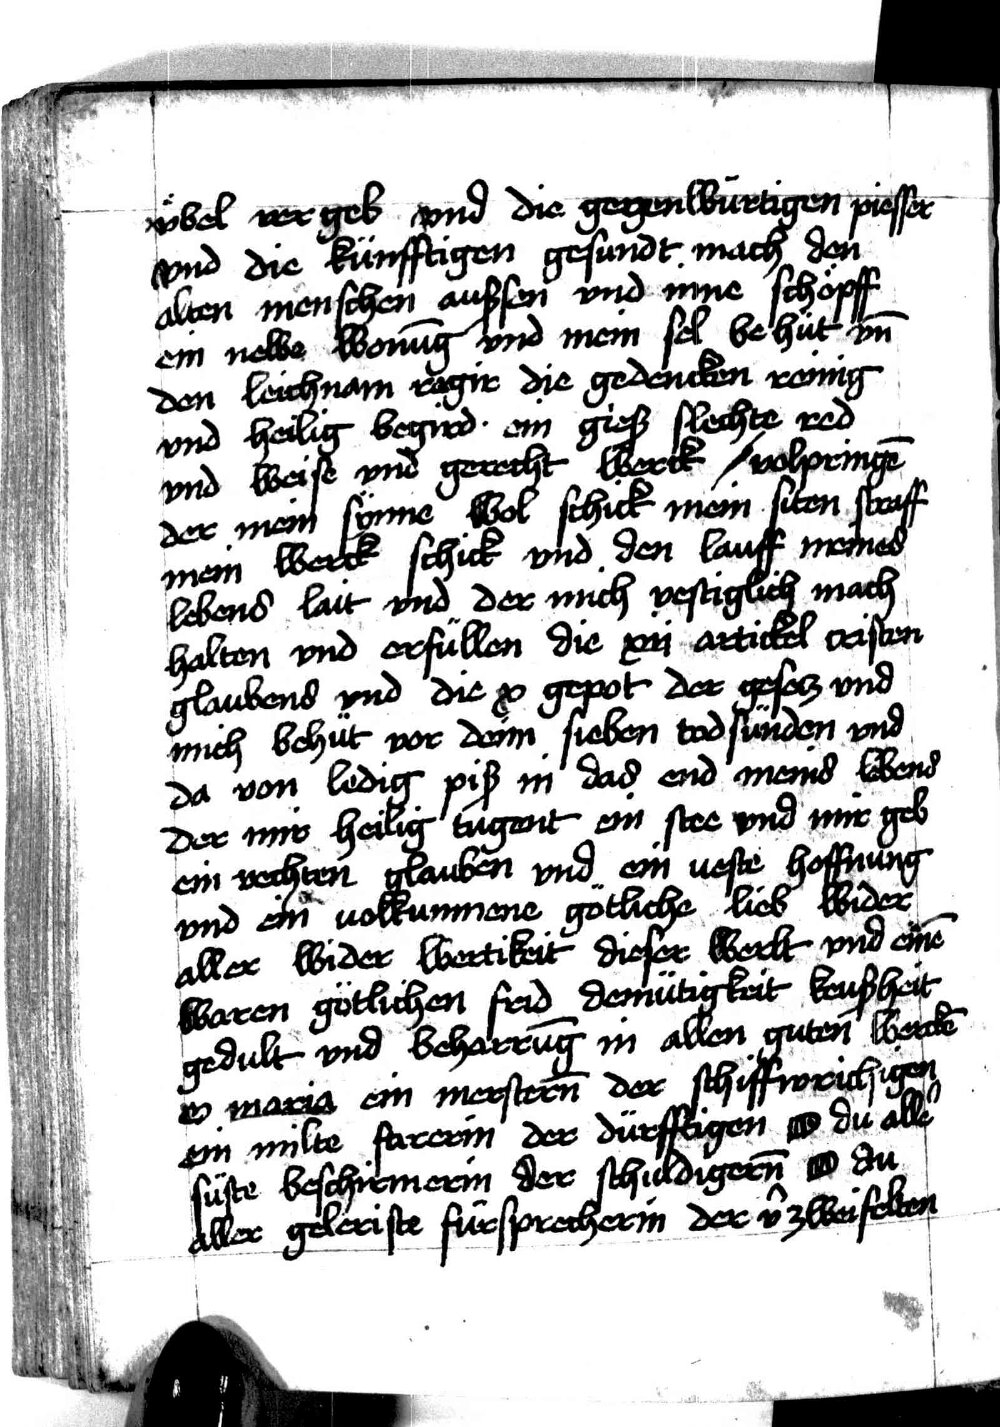 vbel ver geb vnd die gegenWürtigen piesser
vnd die künfftigen gesundt mach den
alten menschen aussen vnd inne schöpff
ein newe Wonūg vnd mein sel be hüt vn̄
den leichnam regir die gedencken reinig
vnd heilig begird · ein gieß slechte red
vnd Weise vnd gerecht Werck / volpringē
der mein synne Wol schick mein siten straff
mein Werck schick vnd den lauff meines
lebens lait vnd der mich vestiglich mach
halten vnd erfüllen die xii artickel cristen
glaubens vnd die x gepot der gesecz vnd
mich behüt vor dein sieben todsünden vnd
da von ledig piß in das end meins lebens
Der mir heilig tugent ein stee vnd mir geb
ein rechten glauben vnd ein veste hoffnung
vnd ein volkummene götliche lieb Wider
aller Wider Wertikeit dieser Werlt vnd einē
Waren götlichen frid demütigkeit keuscheit
gedult vnd beharrūg in allen guten Werckē
o maria ein merstern̄ der schiffwrichigen
ein milte starerin der dürfftigen O du alle᷑
süste beschirmerin der schuldigern̄ O du
aller geleriste fürsprecherin der v᷑zweifelten